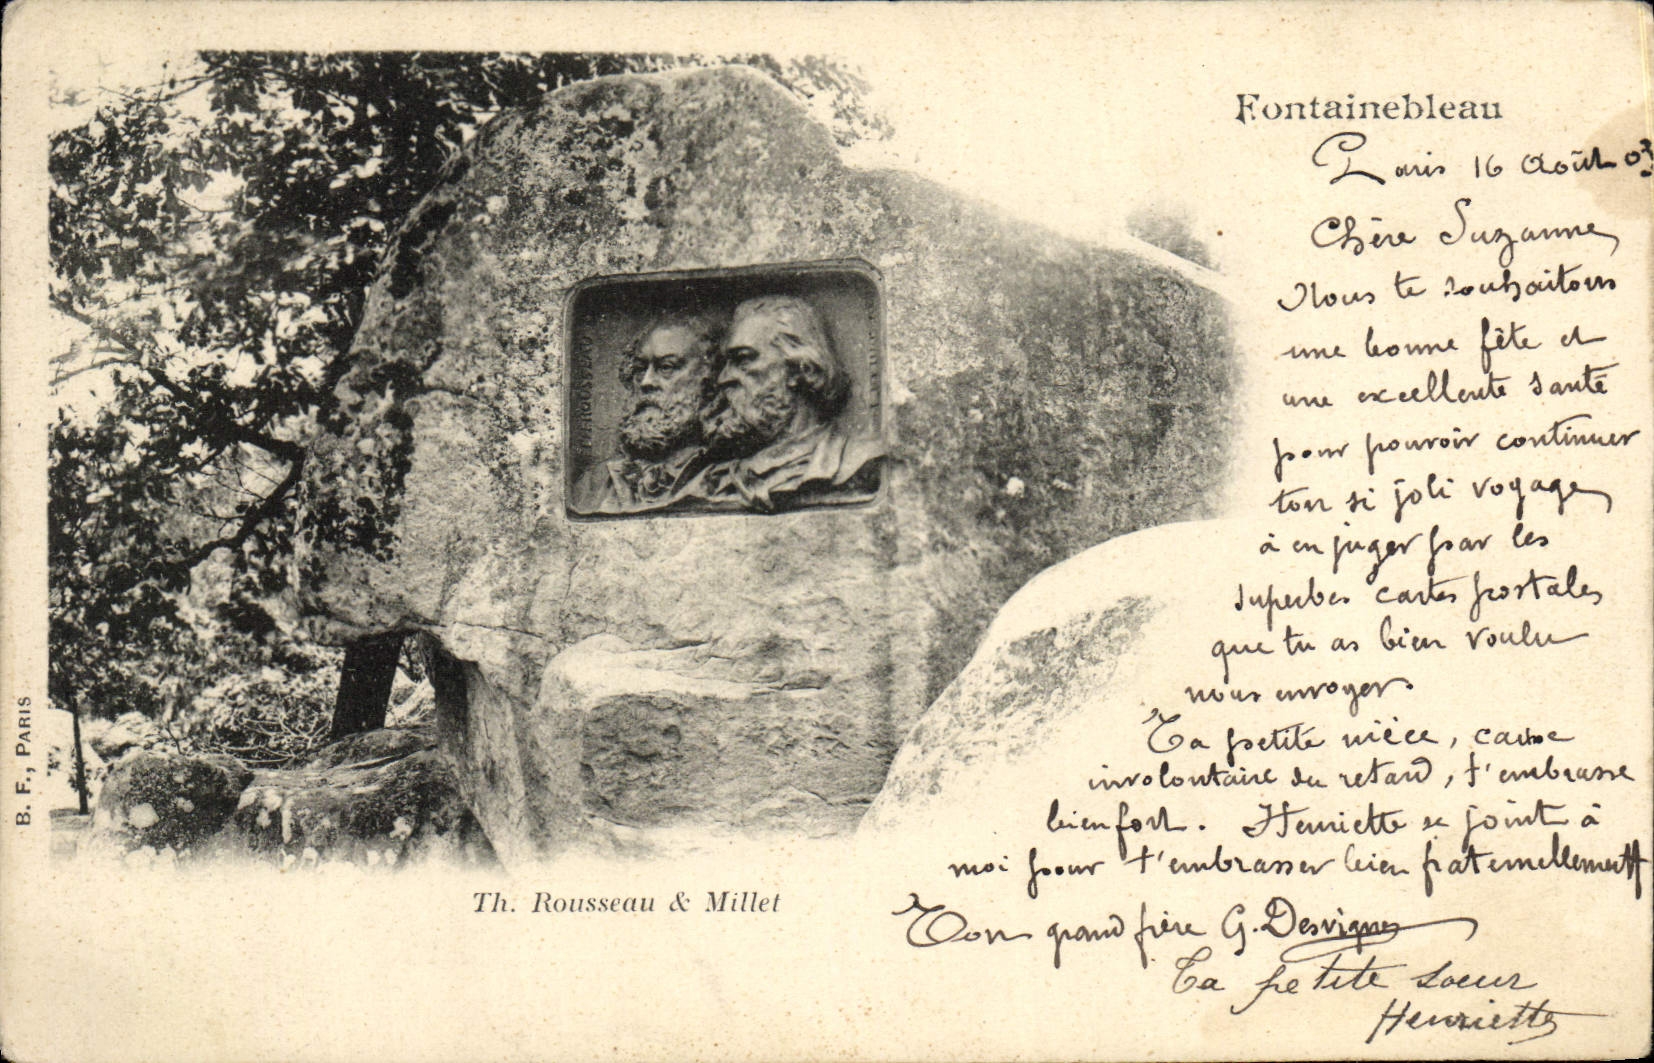 Fontainebleau
Paris 16 Août 03
Chère Suzanne,
Nous te souhaitons
une bonne fête et
une excellente santé
pour pouvoir continuer
ton si joli voyage,
à en juger par les
superbes cartes postales
que tu as bien voulu
nous envoyer.
Ta petite nièce, cause
involontaire du retard, t'embrasse
bien fort. Henriette se joint à
moi pour t'embrasser bien fraternellement
Ton grand frère G. Desvignes
Ta petite soeur
Henriette
TH. ROUSSEAU
Th. Rousseau & Millet
B. F., PARIS